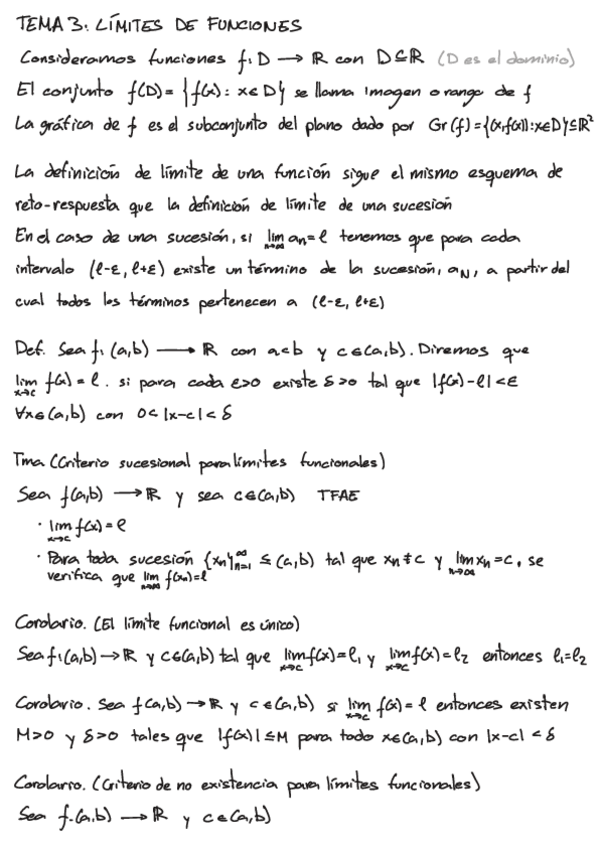 TEMA 3: LÍMITES DE FUNCIONES
Consideramos funciones f: D → ℝ con D⊆ℝ (D es el dominio)
El conjunto f(D)={f(x): x∈D} se llama imagen o rango de f
La gráfica de f es el subconjunto del plano dado por Gr(f)={(x,f(x)):x∈D}⊆ℝ²
La definición de límite de una función sigue el mismo esquema de
reto-respuesta que la definición de límite de una sucesión
En el caso de una sucesión, si lim n→∞ an=l tenemos que para cada
intervalo (l-ε, l+ε) existe un término de la sucesión, aN, a partir del
cual todos los términos pertenecen a (l-ε, l+ε)
Def. Sea f: (a,b) → ℝ con a<b y c∈(a,b). Diremos que
lim x→c f(x)=l. si para cada ε>0 existe δ>0 tal que |f(x)-l|<ε
∀x∈(a,b) con 0<|x-c|<δ
Tma (Criterio sucesional para límites funcionales)
Sea f(a,b) → ℝ y sea c∈(a,b) TFAE
· lim x→c f(x)=l
· Para toda sucesión {xn}∞n=1 ⊆ (a,b) tal que xn≠c y lim n→∞ xn=c, se
verifica que lim n→∞ f(xn)=l
Corolario. (El límite funcional es único)
Sea f:(a,b)→ℝ y c∈(a,b) tal que lim x→c f(x)=l₁ y lim x→c f(x)=l₂ entonces l₁=l₂
Corolario. Sea f(a,b) → ℝ y c∈(a,b) si lim x→c f(x)=l entonces existen
M>0 y δ>0 tales que |f(x)|≤M para todo x∈(a,b) con |x-c|<δ
Corolario. (Criterio de no existencia para límites funcionales)
Sea f.(a,b) → ℝ y c∈(a,b)